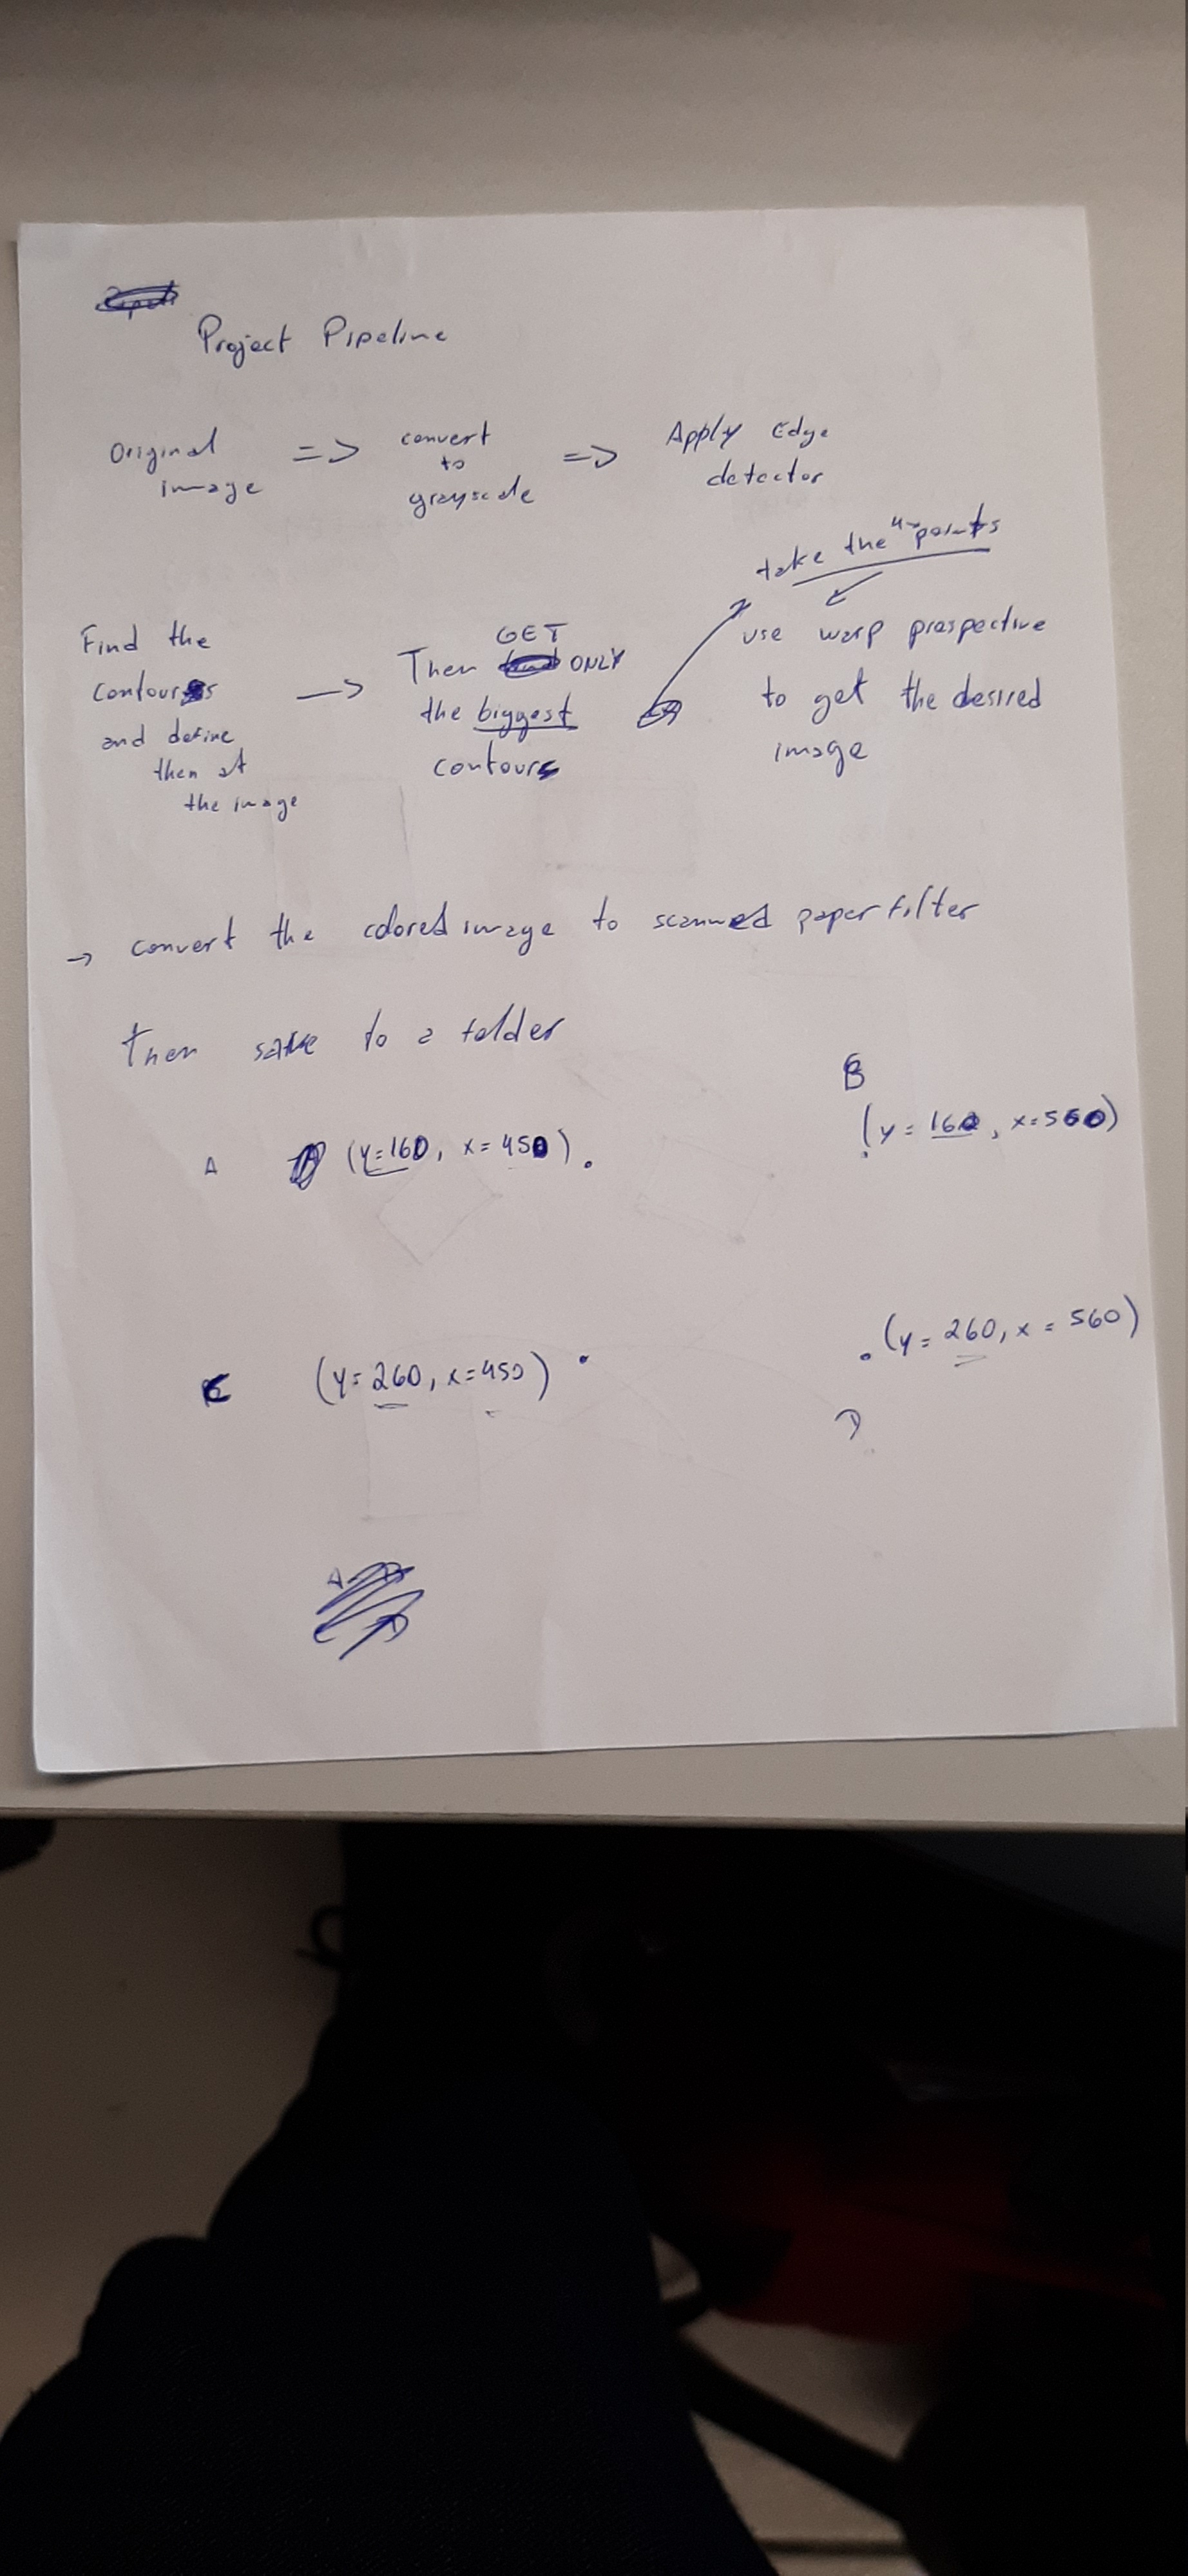 Project Pipeline
Original image => convert to grayscale => Apply Edge detector
take the 4 points
Find the contours and define then at the image -> Then GET ONLY the biggest contours
use warp prospective to get the desired image
-> convert the colored image to scanned paper filter
then save to a folder
B
A (y=160, x=450) . (y=160, x=560)
C (y=260, x=450) . . (y=260, x=560)
D